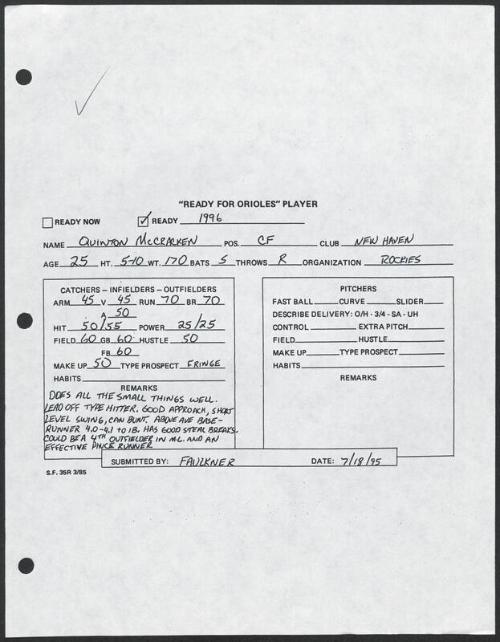 "READY FOR ORIOLES" PLAYER
READY NOW ✓ READY 1996
NAME QUINTON McCRACKEN POS. CF CLUB NEW HAVEN
AGE 25 HT. 5-10 WT. 170 BATS S THROWS R ORGANIZATION ROCKIES
CATCHERS – INFIELDERS – OUTFIELDERS
ARM 45 V 45 RUN 70 BR 70
A 50
HIT 50/55 POWER 25/25
FIELD 60 GB 60 HUSTLE 50
FB 60
MAKE UP 50 TYPE PROSPECT FRINGE
HABITS
REMARKS
DOES ALL THE SMALL THINGS WELL.
LEAD OFF TYPE HITTER. GOOD APPROACH, SHORT
LEVEL SWING, CAN BUNT. ABOVE AVE BASE-
RUNNER 4.0-4.1 TO 1B. HAS GOOD STEAL BREAKS.
COULD BE A 4TH OUTFIELDER IN M.L. AND AN
EFFECTIVE PINCH RUNNER
PITCHERS
FAST BALL CURVE SLIDER
DESCRIBE DELIVERY: O/H - 3/4 - SA - UH
CONTROL EXTRA PITCH
FIELD HUSTLE
MAKE UP TYPE PROSPECT
HABITS
REMARKS
SUBMITTED BY: FAULKNER DATE: 7/18/95
S.F. 35R 3/85